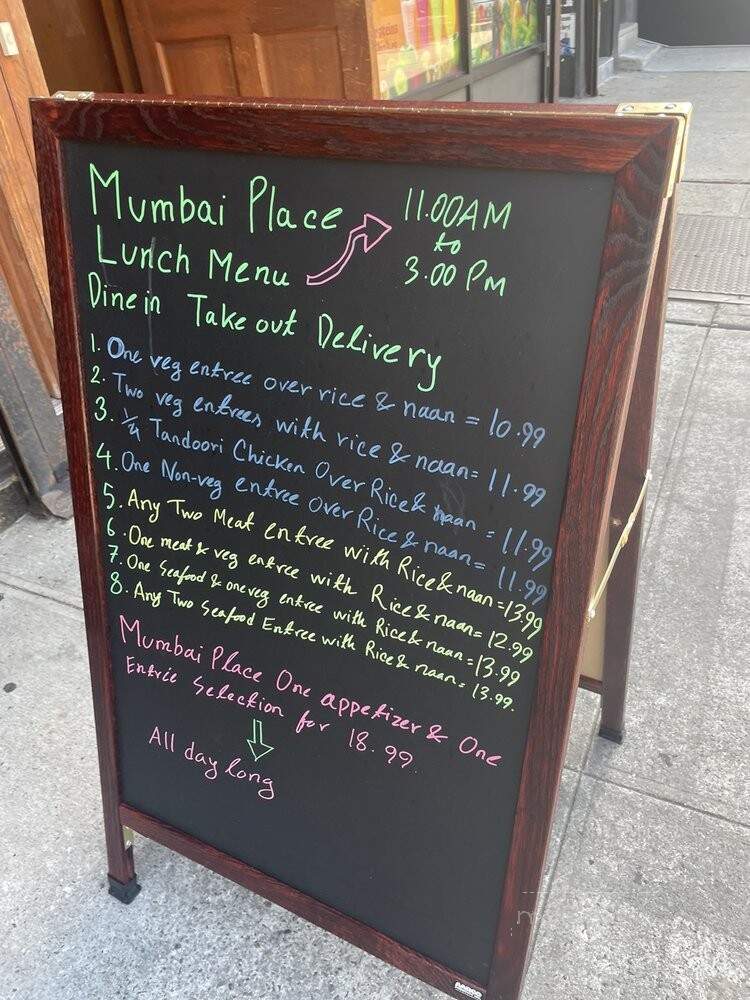 Mumbai Place
Lunch Menu
11.00AM
to
3.00 PM
Dine in Take out Delivery
1. One veg entree over rice & naan = 10.99
2. Two veg entrees with rice & naan = 11.99
3. 1/4 Tandoori Chicken Over Rice & naan = 11.99
4. One Non-veg entree over Rice & naan = 11.99
5. Any Two Meat entree with Rice & naan = 13.99
6. One meat & veg entree with Rice & naan = 12.99
7. One Seafood & one veg entree with Rice & naan = 13.99
8. Any Two Seafood Entree with Rice & naan = 13.99.
Mumbai Place One appetizer & One
Entrie Selection for 18.99
All day long